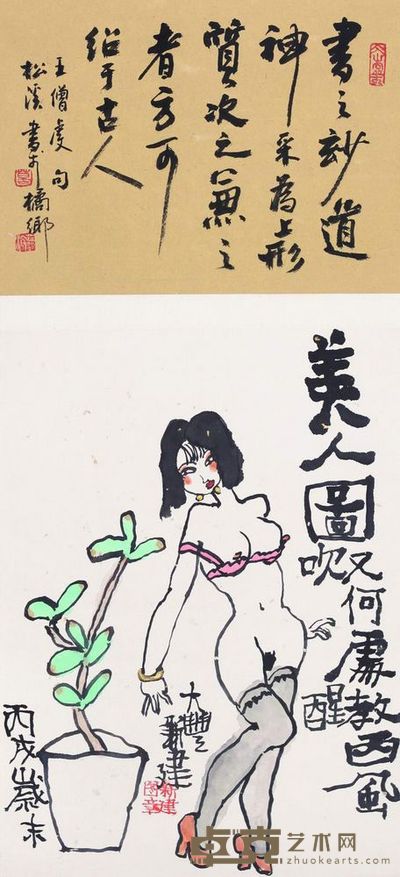 書之妙道
神采為上形
質次之兼之
者方可
紹于古人
王僧虔句
松溪書于橘鄉
美人圖
又何處教西風
吹醒
大豐
新建
新建圖章
丙戌歲末
卓克艺术网
zhuokearts.com